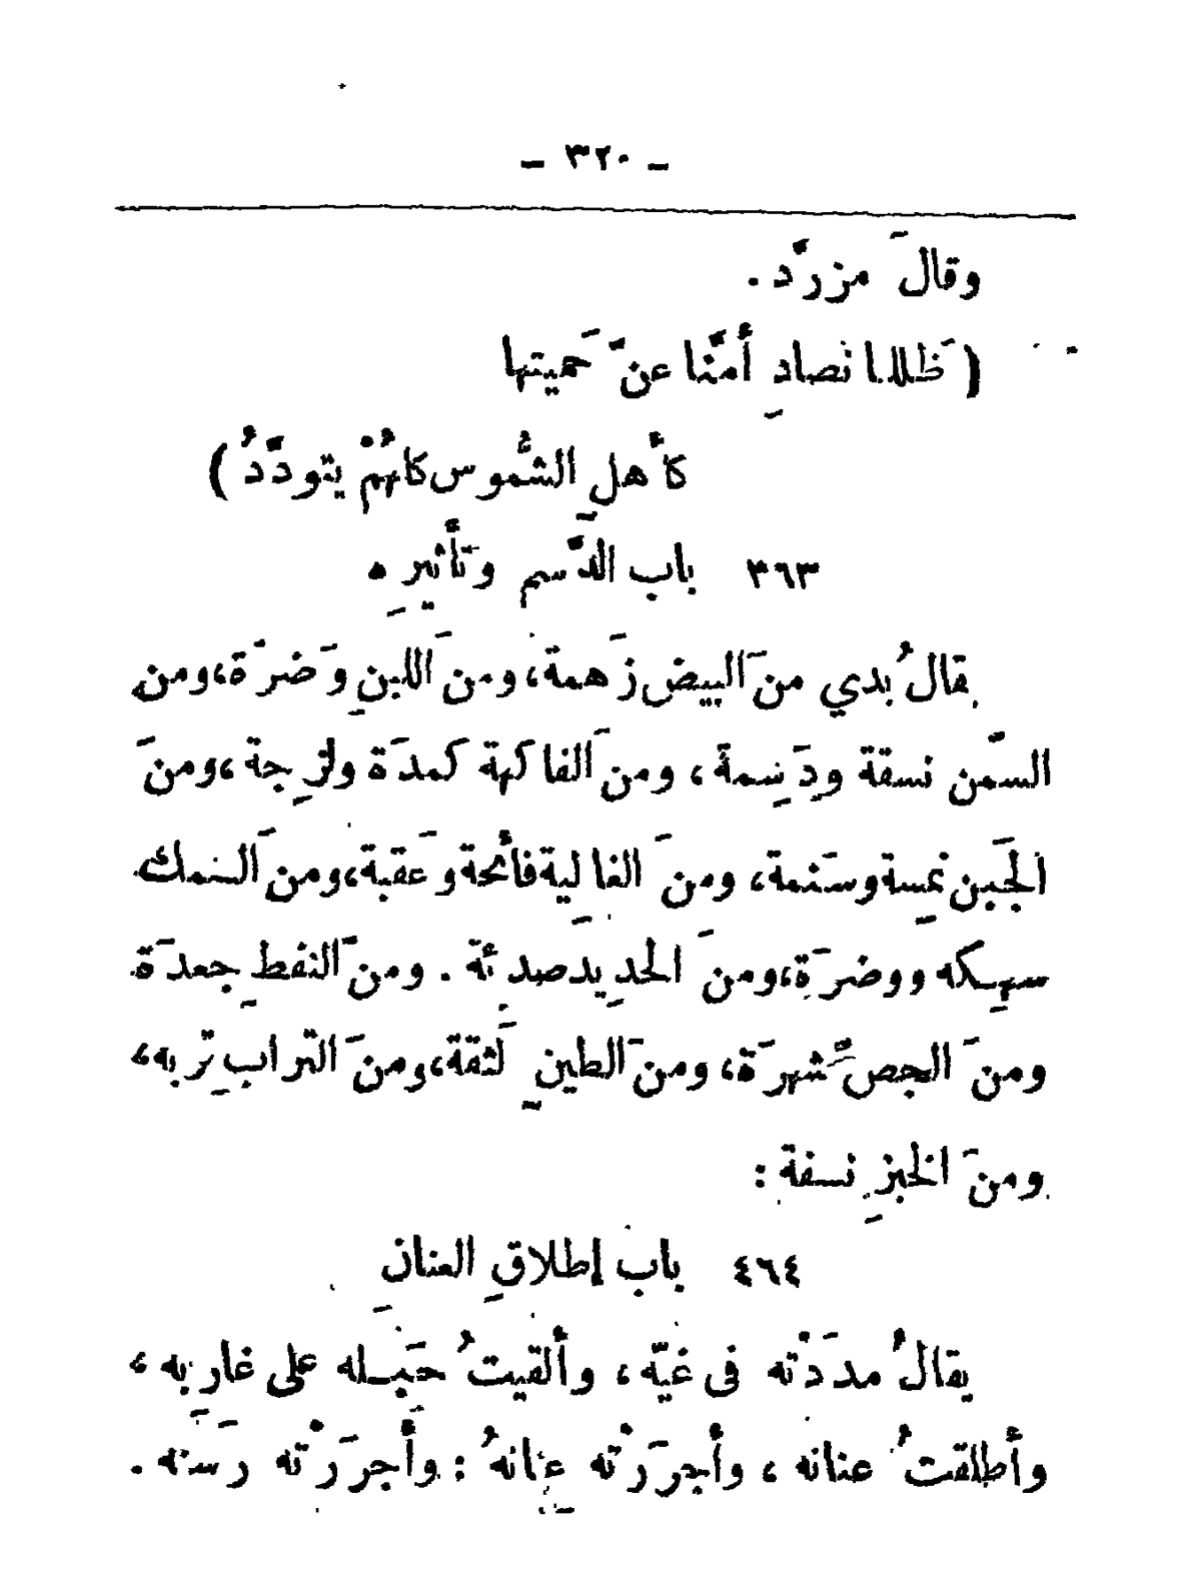 ــ ٣٢٠ ــ
وقالَ مزرَّد .
( ظَللنا نصادِ أمَّنا عنَّ حَميتها
كأهلِ الشُّموس كلهُمْ يتودَّدُ )
٣٦٣ باب الدَّسم وتَأثيرِه
يقالُ يدي منَ البيض زَهمة، ومنَ اللبنِ وَضرَة، ومن
السَّمن نسقة ودَسِمة ، ومنَ الفاكهة كَمدَة ولزِجة ، ومنَ
الجَبن نمِسة وسَنمة، ومنَ الغالِية فائحة وعَقبة، ومنَ السمك
سهِكه ووضرَة، ومنَ الحدِيد صدِئة . ومنَ النفطِ جعدَة
ومنَ الجصِّ شهرَة، ومنَ الطينِ لَثقة، ومنَ الترابِ تربه،
ومنَ الخبزِ نسفة :
٤٦٤ باب إطلاقِ العنانِ
يقالُ مددَْته فى غيّه ، وألقيتُ حَبله على غارِبه ،
وأطلقتُ عنانه ، وأجرَرْته عِنانهُ : وأجرَرْته رَسَنه .